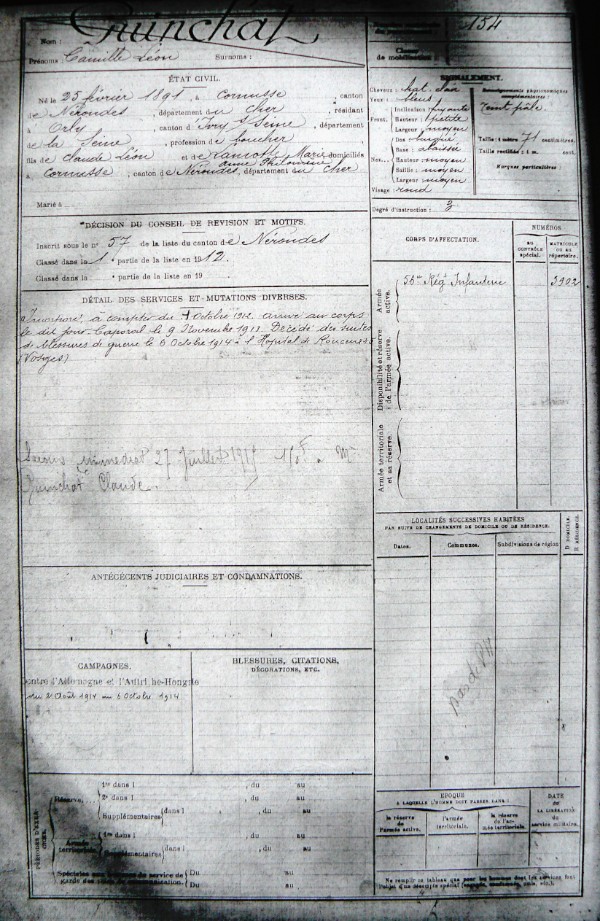 Nom : Guinchat
Prénoms : Camille Léon Surnoms :
ÉTAT CIVIL.
Né le 25 février 1891, à Cornusse, canton
de Nérondes, département du Cher, résidant
à Orly, canton d'Ivry s/ Seine, département
de la Seine, profession de boucher
fils de Claude Léon et de Lamotte Marie
Anne Philomène domiciliés
à Cornusse, canton de Nérondes, département du Cher
Marié à
DÉCISION DU CONSEIL DE REVISION ET MOTIFS.
Inscrit sous le n° 57 de la liste du canton de Nérondes
Classé dans la 1e partie de la liste en 1912.
Classé dans la partie de la liste en 19
DÉTAIL DES SERVICES ET MUTATIONS DIVERSES.
à compter du Octobre 1912. arrivé au corps
le dit jour. Caporal le 9 Novembre 1913. Décédé des suites
de blessures de guerre le 6 Octobre 1914 à l'Hopital de
(Vosges)
Secours immédiat 27 Juillet 150F
Guinchat Claude.
ANTÉCÉDENTS JUDICIAIRES ET CONDAMNATIONS.
CAMPAGNES.
contre l'Allemagne et l'Autriche-Hongrie
du 2 Août 1914 au 6 Octobre 1914
BLESSURES, CITATIONS,
DÉCORATIONS, ETC.
Réserve.
1re dans l , du au
2e dans l , du au
Supplémentaires dans l , du au
Armée territoriale.
1re dans l , du au
Supplémentaires dans l , du au
Spéciales aux hommes du service de garde des voies de communication. Du au
Du au
154
Classe de mobilisation
SIGNALEMENT.
Cheveux : chat.
Yeux : bleus
Front. Inclinaison : fuyante
Hauteur : petite
Largeur : moyen
Nez... Dos :
Base : abaissée
Hauteur : moyen
Saillie : moyen
Largeur : moyen
Visage rond
Renseignements physionomiques complémentaires :
Teint pâle
Taille : 1 mètre 71 centimètres.
Taille rectifiée : 1 m. cent.
Marques particulières
Degré d'instruction : 3
CORPS D'AFFECTATION.
NUMÉROS
AU CONTRÔLE spécial.
MATRICULE OU AU répertoire.
Armée active.
56me Régt Infanterie 3902
Disponibilité et réserve de l'armée active.
Armée territoriale et sa réserve.
LOCALITÉS SUCCESSIVES HABITÉES
PAR SUITE DE CHANGEMENTS DE DOMICILE OU DE RÉSIDENCE.
Dates. Communes. Subdivisions de région
D DOMICILE
R RÉSIDENCE
Pas de
ÉPOQUE
À LAQUELLE L'HOMME DOIT PASSER DANS :
la réserve de l'armée active.
l'armée territoriale.
la réserve de l'armée territoriale.
DATE
DE LA LIBÉRATION du service militaire.
Ne remplir ce tableau que pour les hommes dont les services font l'objet d'un décompte spécial (engagés, omis, etc.).